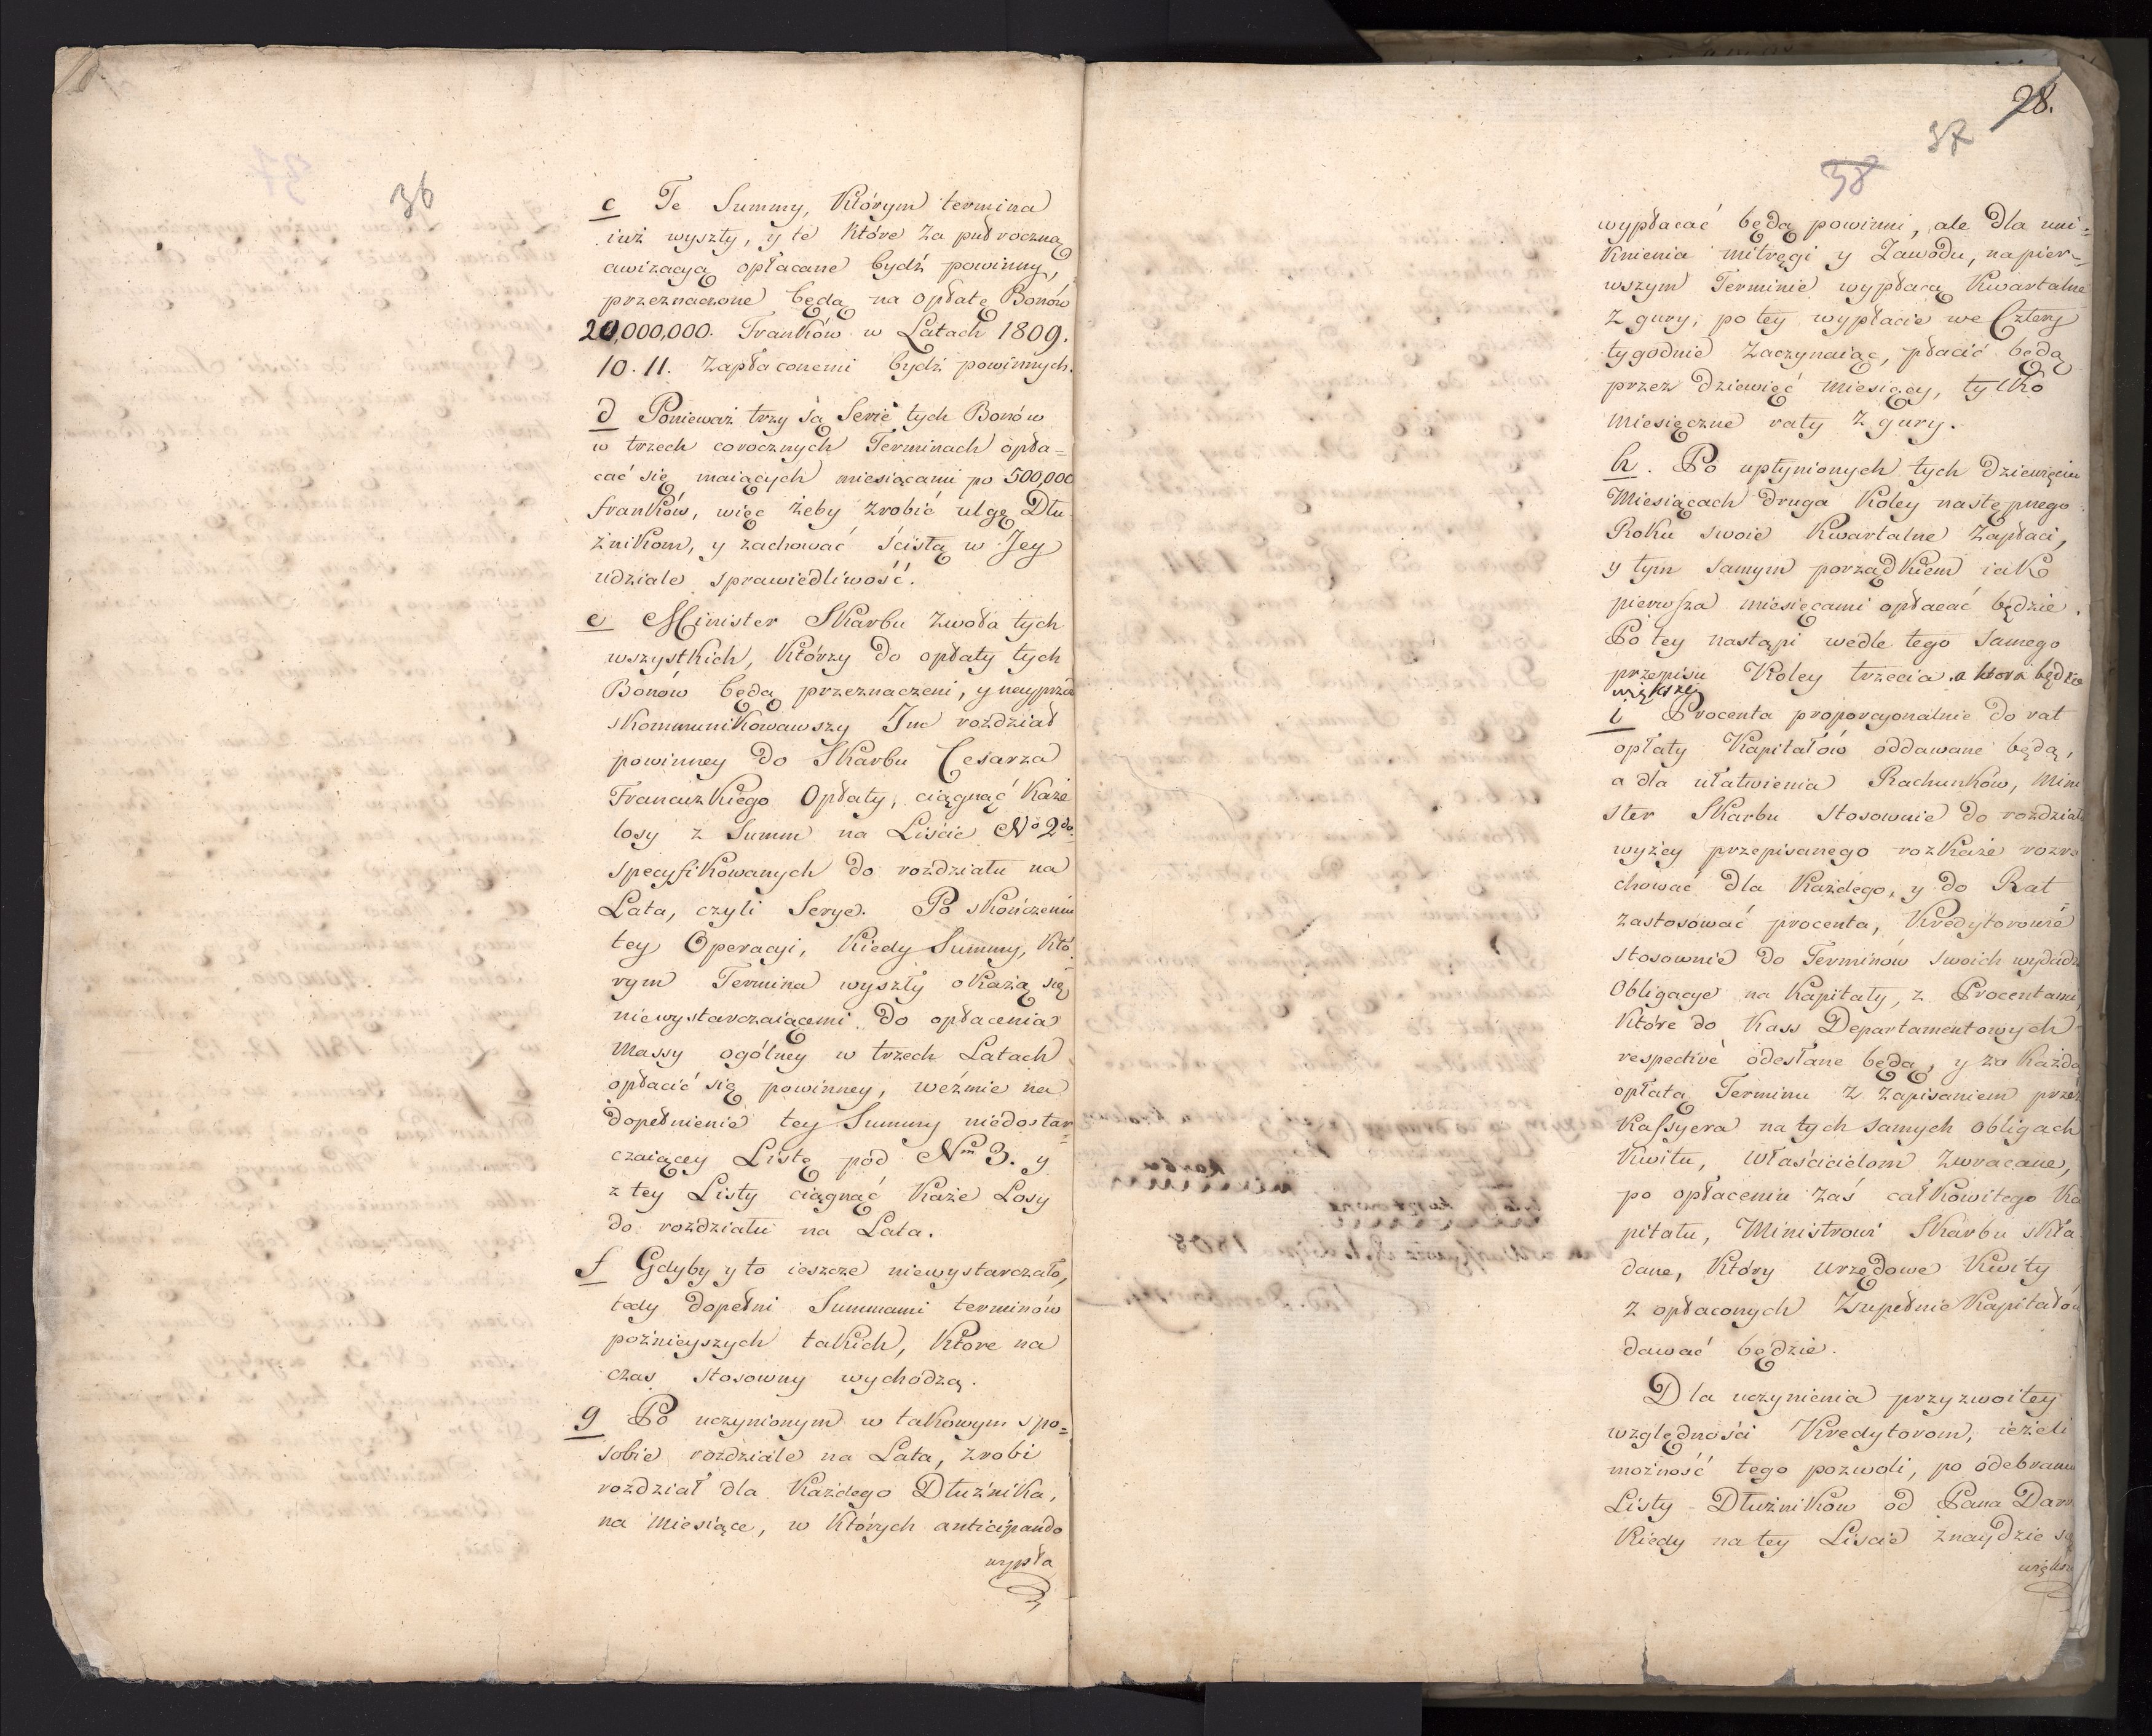 36
c Te Summy, Którym termina
iuż wyszły, y te które za puł roczną
awizacyą opłacane bydź powinny,
przeznaczone będą na opłatę Bonów
20,000,000. Franków w Latach 1809.
10. 11. zapłaconemi bydź powinnych.
d Ponieważ trzy są Serie tych Bonów
w trzech corocznych Terminach opła=
cać się maiących miesiącami po 500,000
franków, więc żeby zrobić ulgę Dłu
żnikom, y zachować ścisłą w Jey
udziale sprawiedliwość.
e Minister Skarbu zwoła tych
wszystkich, Którzy do opłaty tych
Bonów będą przeznaczeni, y nayprzód
skommunikowawszy Im rozdział
powinney do Skarbu Cesarza
Francuzkiego Opłaty, ciągnąć Każe
losy z Summ na Liście No 2do.
specyfikowanych do rozdziału na
Lata, czyli Serye. Po skończeniu
tey Operacyi, Kiedy Summy, Któ
rym Termina wyszły okażą się
niewystarczaiącemi do opłacenia
Massy ogólney w trzech Latach
opłacić się powinney, weźmie na
dopełnienie tey Summy niedostar=
czaiącey Listę pod Nm 3. y
z tey Listy ciągnąć Każe Losy
do rozdziału na Lata.
f Gdyby y to ieszcze niewystarczało,
tedy dopełni Summami terminów
poźnieyszych takich, Które na
czas stosowny wychodzą.
g Po uczynionym w takowym spo=
sobie rozdziale na Lata, zrobi
rozdział dla Każdego Dłużnika,
na miesiące, w Których anticipando
wypła
28.
37
38
wypłacać będą powinni, ale dla uni=
knienia mitręgi y Zawodu, napier=
wszym Terminie wypłacą Kwartalne
z gury, po tey wypłacie we Cztery
tygodnie zaczynaiąc, płacić będą
przez dziewięć miesięcy, tylko
miesięczne raty z gury.
h. Po upłynionych tych dziewięciu
Miesiącach druga Koley następnego
Roku swoie Kwartalne zapłaci,
y tym samym porządkiem iako
pierwsza miesięcami opłacać będzie.
Po tey nastąpi wedle tego samego
przepisu Koley trzecia. a która będzie
większej
i Procenta proporcyonalnie do rat
opłaty Kapitałów oddawane będą,
a dla ułatwienia Rachunków, Mini
ster Skarbu stosownie do rozdziału
wyżey przepisanego rozkaże rozra
chować dla Każdego, y do Rat
zastosować procenta, Kredytorowie
stosownie do Terminów swoich wydadzą
Obligacye na Kapitały, z Procentami,
Które do Kass Departamentowych
respectivè odesłane będą, y za Każdą
opłatą Terminu z zapisaniem przez
Kassyera na tych samych obligach
Kwitu, Właścicielom zwracane,
po opłaceniu zaś całkowitego Ka
pitału, Ministrowi Skarbu skła
dane, Który Urzędowe Kwity
z opłaconych zupełnie Kapitałów
dawać będzie.
Dla uczynienia przyzwoitey
względności Kredytorom, ieżeli
możność tego pozwoli, po odebraniu
Listy Dłużników od Pana Daru
Kiedy na tey Liście znaydzie się
większ